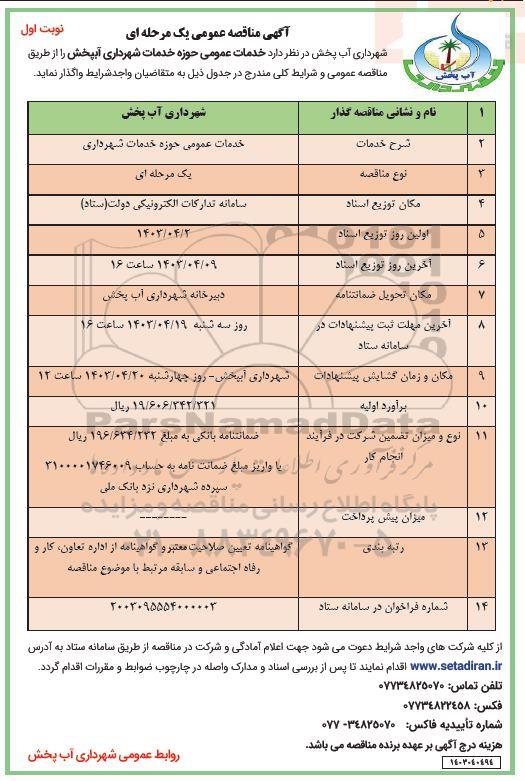 نوبت اول
آگهی مناقصه عمومی یک مرحله ای
آب پخش
شهرداری آب پخش در نظر دارد خدمات عمومی حوزه خدمات شهرداری آبپخش را از طریق
مناقصه عمومی و شرایط کلی مندرج در جدول ذیل به متقاضیان واجدشرایط واگذار نماید.
۱ نام و نشانی مناقصه گذار شهرداری آب پخش
۲ شرح خدمات خدمات عمومی حوزه خدمات شهرداری
۳ نوع مناقصه یک مرحله ای
۴ مکان توزیع اسناد سامانه تدارکات الکترونیکی دولت(ستاد)
۵ اولین روز توزیع اسناد ۱۴۰۳/۰۴/۲
۶ آخرین روز توزیع اسناد ۱۴۰۳/۰۴/۰۹ ساعت ۱۶
۷ مکان تحویل ضمانتنامه دبیرخانه شهرداری آب پخش
۸ آخرین مهلت ثبت پیشنهادات در روز سه شنبه ۱۴۰۳/۰۴/۱۹ ساعت ۱۶
سامانه ستاد
۹ مکان و زمان گشایش پیشنهادات شهرداری آبپخش- روز چهارشنبه ۱۴۰۳/۰۴/۲۰ ساعت ۱۲
۱۰ برآورد اولیه ۱۹/۶۰۶/۳۴۲/۳۲۱ ریال
۱۱ نوع و میزان تضمین شرکت در فرآیند ضمانتنامه بانکی به مبلغ ۱۹۶/۶۳۴/۲۳۲ ریال
انجام کار یا واریز مبلغ ضمانت نامه به حساب ۳۱۰۰۰۰۱۷۴۶۰۰۹
سپرده شهرداری نزد بانک ملی
۱۲ میزان پیش پرداخت --------
۱۳ رتبه بندی گواهینامه تعیین صلاحیت‌معتبرو گواهینامه از اداره تعاون، کار و
رفاه اجتماعی و سابقه مرتبط با موضوع مناقصه
۱۴ شماره فراخوان در سامانه ستاد ۲۰۰۳۰۹۵۵۵۴۰۰۰۰۰۳
ParsNamadData
مرکز فرآوری اطلاعات
پایگاه اطلاع رسانی مناقصه و مزایده
۰۲۱-۸۸۳۴۹۶۷۰-۵
از کلیه شرکت های واجد شرایط دعوت می شود جهت اعلام آمادگی و شرکت در مناقصه از طریق سامانه ستاد به آدرس
www.setadiran.ir اقدام نمایند تا پس از بررسی اسناد و مدارک واصله در چارچوب ضوابط و مقررات اقدام گردد.
تلفن تماس: ۰۷۷۳۴۸۲۵۰۷۰
فکس: ۰۷۷۳۴۸۲۲۴۵۸
شماره تأییدیه فاکس: ۳۴۸۲۵۰۷۰- ۰۷۷
هزینه درج آگهی بر عهده برنده مناقصه می باشد.
۱۴۰۳۰۴۰۴۹۴
روابط عمومی شهرداری آب پخش